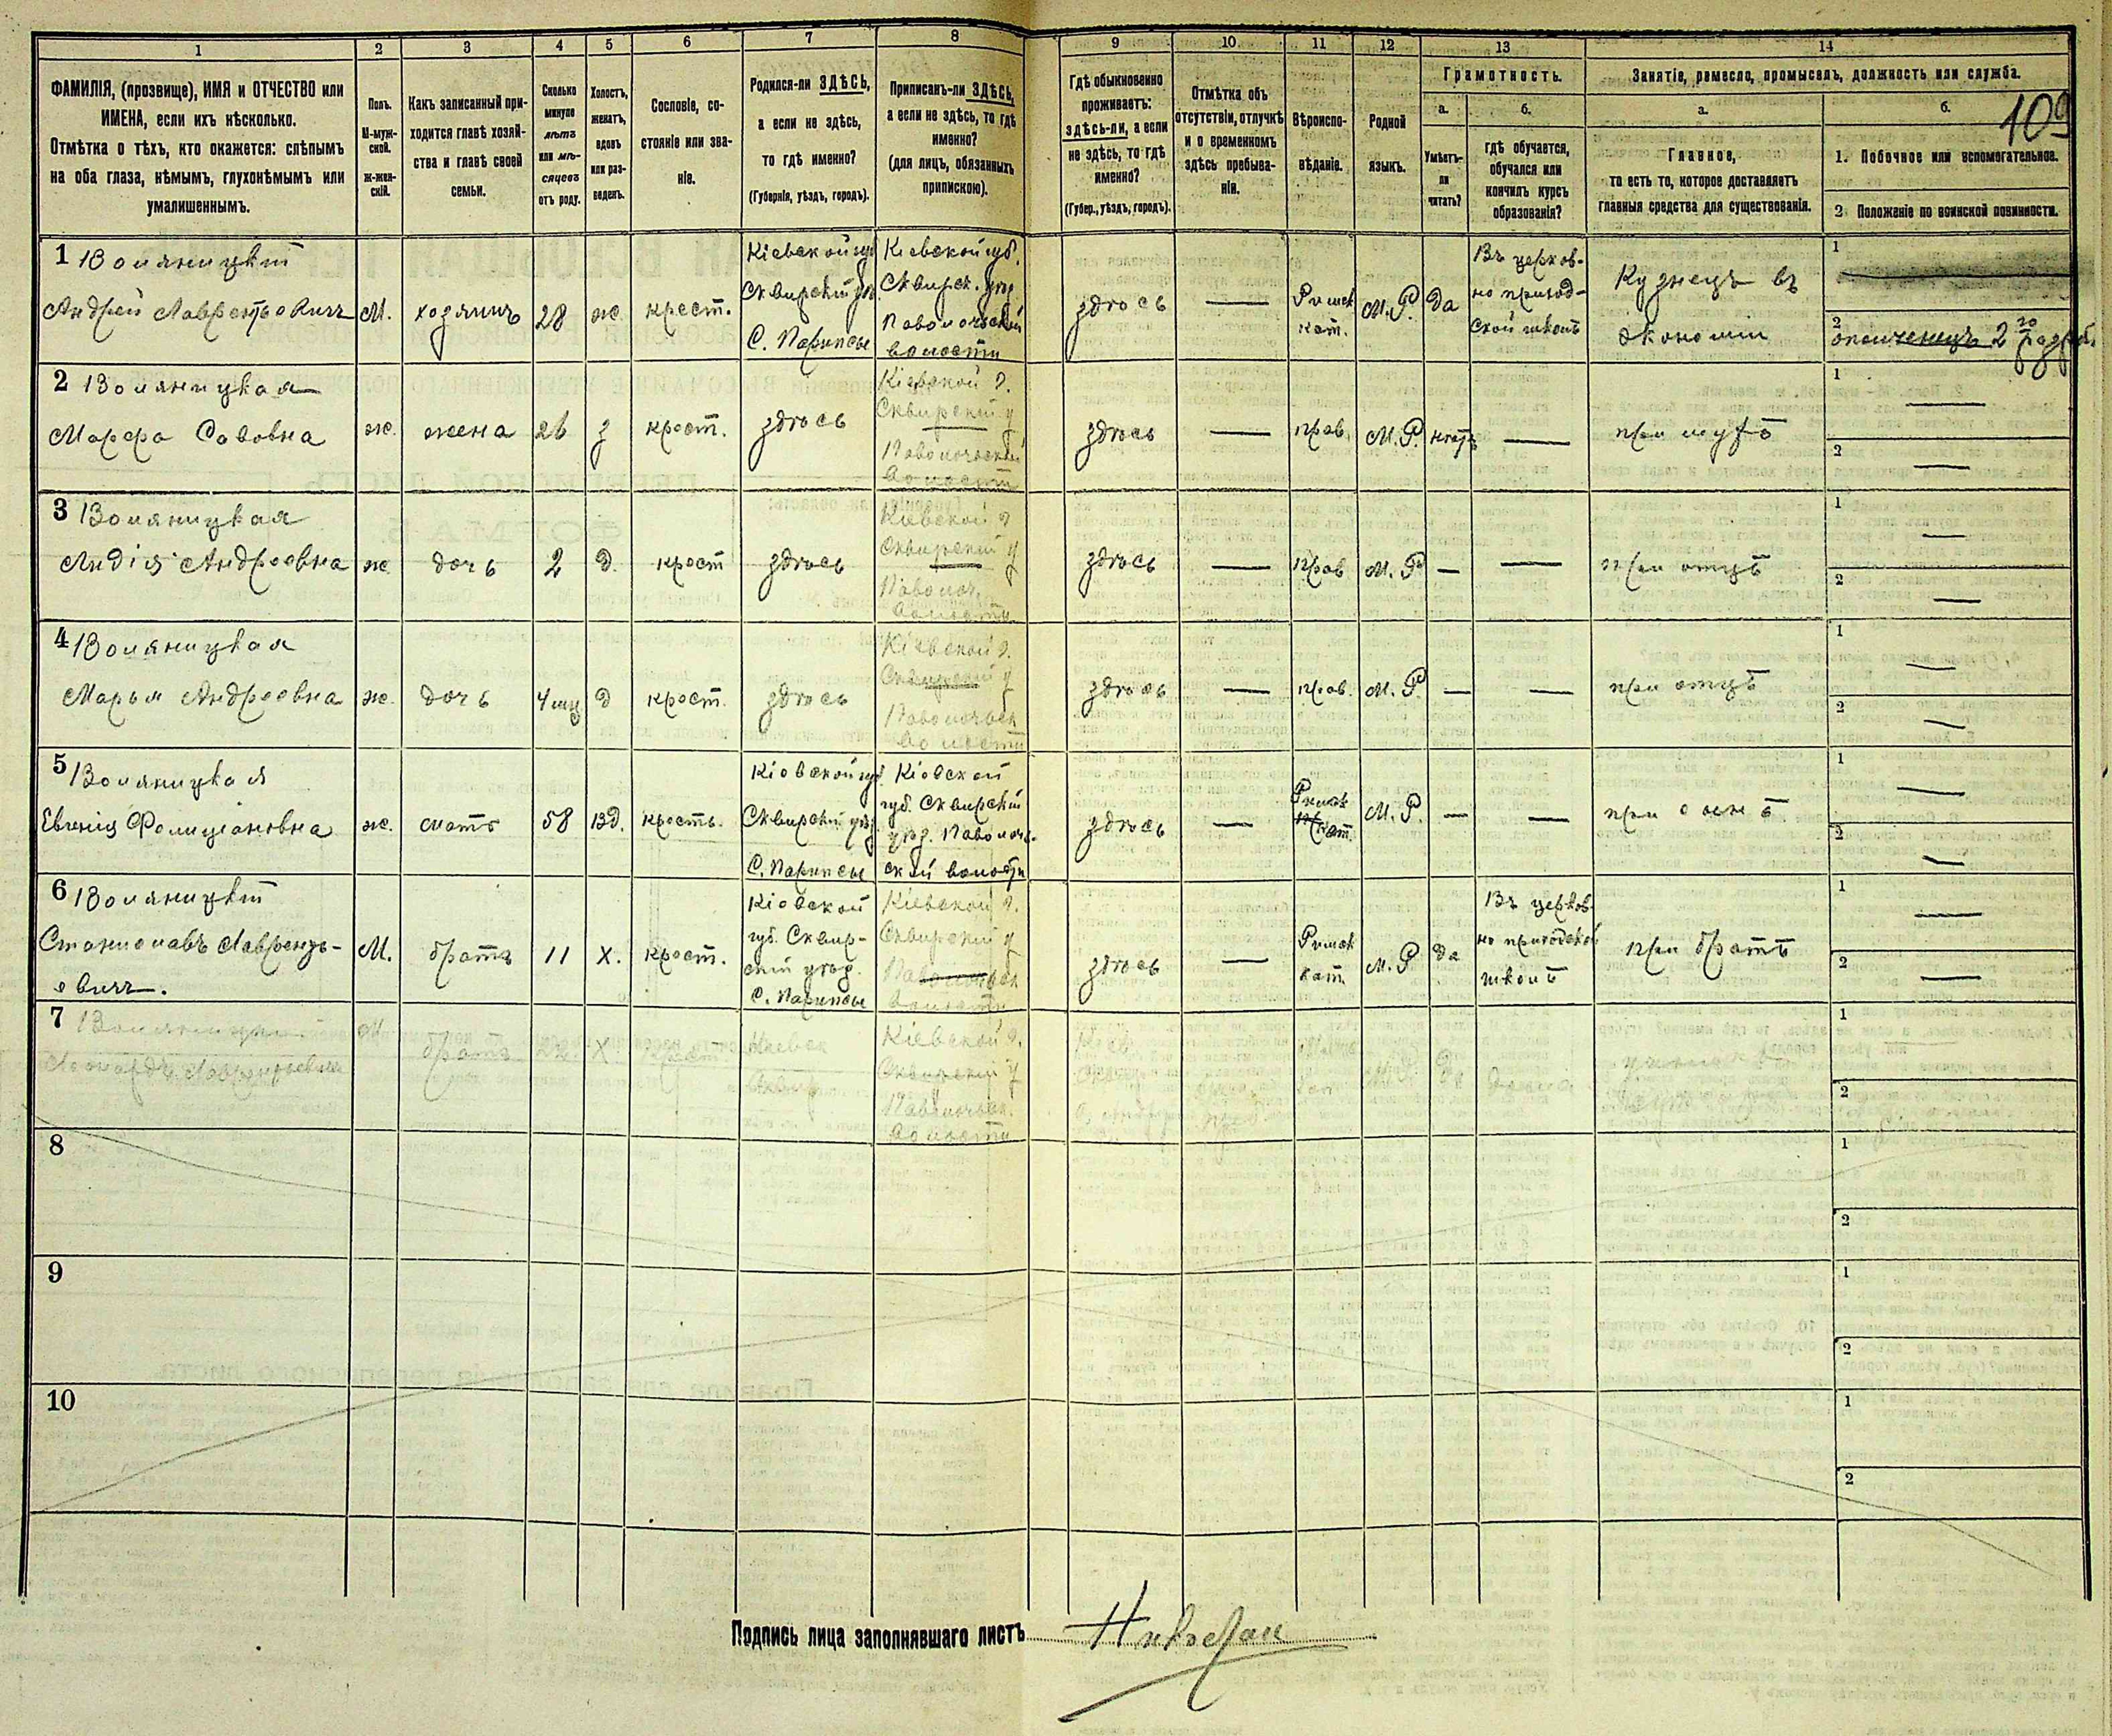 1 2 3 4 5 6 7 8 9 10 11 12 13 14
ФАМИЛІЯ, (прозвище), ИМЯ и ОТЧЕСТВО или
ИМЕНА, если ихъ нѣсколько.
Отмѣтка о тѣхъ, кто окажется: слѣпымъ
на оба глаза, нѣмымъ, глухонѣмымъ или
умалишеннымъ.
Полъ.
М-муж-
ской.
ж-жен-
скій.
Какъ записанный при-
ходится главѣ хозяй-
ства и главѣ своей
семьи.
Сколько
минуло
лѣтъ
или мѣ-
сяцевъ
отъ роду.
Холостъ,
женатъ,
вдовъ
или раз-
веденъ.
Сословіе, со-
стояніе или зва-
ніе.
Родился-ли ЗДѢСЬ,
а если не здѣсь,
то гдѣ именно?
(Губернія, уѣздъ, городъ).
Приписанъ-ли ЗДѢСЬ,
а если не здѣсь, то гдѣ
именно?
(для лицъ, обязанныхъ
припискою).
Гдѣ обыкновенно
проживаетъ:
здѣсь-ли, а если
не здѣсь, то гдѣ
именно?
(Губер., уѣздъ, городъ).
Отмѣтка объ
отсутствіи, отлучкѣ
и о временномъ
здѣсь пребыва-
ніи.
Вѣроиспо-
вѣданіе.
Родной
языкъ.
Грамотность.
а.
Умѣетъ-
ли
читать?
б.
гдѣ обучается,
обучался или
кончилъ курсъ
образованія?
Занятіе, ремесло, промыселъ, должность или служба.
а.
Главное,
то есть то, которое доставляетъ
главныя средства для существованія.
б.
109
1. Побочное или вспомогательное.
2 Положеніе по воинской повинности.
1 Воляницкій
Андрей Лаврентьовичъ
М.
хозяинъ
28
ж.
крест.
Кіевской губ
Сквирскій уѣз.
С. Парипсы
Кіевской губ.
Сквирск. уѣз
Паволочьской
волости
здѣсь
Римск
кат.
М. Р.
да
Въ церков-
но приход-
ской школѣ
Кузнецъ въ
экономіи
1
2
ополченецъ 2 го разряд.
2 Воляницкая
Марфа Савовна
ж.
жена
26
з
крест.
здѣсь
Кіевской г.
Сквирскій у
Паволочьской
волости
здѣсь
прав.
М. Р.
нѣтъ
при мужѣ
1
2
3 Воляницкая
Лидія Андреевна
ж.
дочь
2
д.
крест
здѣсь
Кіевской г
Сквирскій у
Паволоч.
волости
здѣсь
прав
М. Р
при отцѣ
1
2
4 Воляницкая
Марья Андреевна
ж.
дочь
4 мц
д
крест.
здѣсь
Кіевской г.
Сквирскій у
Паволочьск
волости
здѣсь
прав.
М. Р.
при отцѣ
1
2
5 Воляницкая
Евгенія Фелиціановна
ж.
мать
58
вд.
крестъ.
Кіевской губ
Сквирскій уѣз
С. Парипсы
Кіевской
губ. Сквирскій
уѣзд. Паволочь-
ской волости
здѣсь
Римск
кат.
М. Р.
при сынѣ
1
2
6 Воляницкій
Станиславъ Лавренть-
евичъ.
М.
братъ
11
х.
крест.
Кіевской
губ. Сквир-
скій уѣзд.
С. Парипсы
Кіевской г.
Сквирскій у
Паволочьск
волости
здѣсь
Римск
кат.
М. Р
да
Въ церков-
но приходской
школѣ
при братѣ
1
2
7 Воляницкій
Леонардъ Лаврентьевичъ
М
братъ
22
х.
крест
Кіевск
Сквир
Кіевской г.
Сквирскій у
Паволочьск.
волости
М. Р.
да
дома
1
2
8
1
2
9
1
2
10
1
2
Подпись лица заполнявшаго листъ